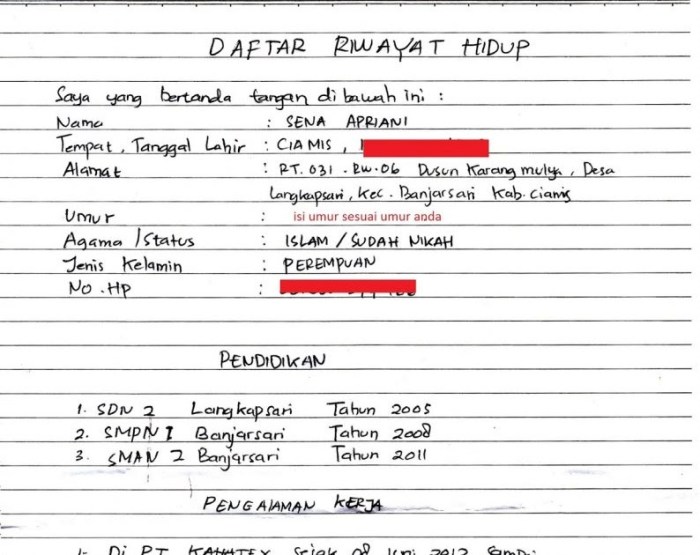 DAFTAR RIWAYAT HIDUP
Saya yang bertanda tangan di bawah ini :
Nama : SENA APRIANI
Tempat, Tanggal Lahir : CIAMIS ,
Alamat : RT. 031 . RW. 06 Dusun Karang mulya, Desa
Langkapsari, Kec. Banjarsari Kab. Ciamis
Umur : isi umur sesuai umur anda
Agama / Status : ISLAM / SUDAH NIKAH
Jenis Kelamin : PEREMPUAN
No . HP :
PENDIDIKAN
1. SDN 2 Langkapsari Tahun 2005
2. SMPN 1 Banjarsari Tahun 2008
3. SMAN 2 Banjarsari Tahun 2011
PENGALAMAN KERJA
1. Di PT. KAHATEX sejak 08 Juni 2012